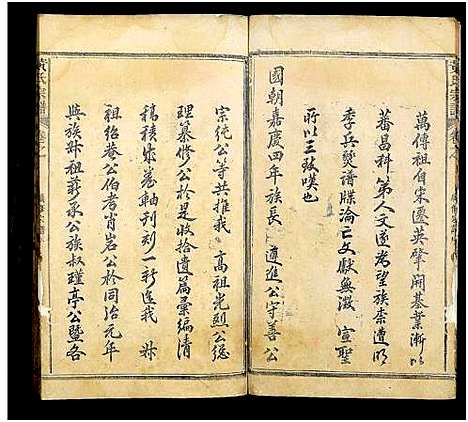 萬傳祖自宋遷英肇開基業漸以
蕃昌科第人文遂為望族柰遭明
季兵燹譜牒淪亡文獻無徵 宣聖
所以三致嘆也
國朝嘉慶四年族長 遵進公守善公
宗純公等共推我 高祖光烈公總
理纂修公於是收拾遺篇彙編清
稿積成卷軸刊刻一新迨我 叔
祖紹菴公伯考肖岩公於同治元年
與族叔祖莪承公族叔瑾亭公暨各
黃氏宗譜